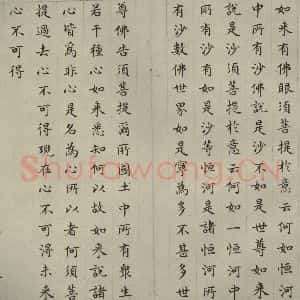 如来有佛眼須菩提於意云何如恒河
中所有沙佛說是沙不如是世尊如来
說是沙須菩提於意云何如一恒河中
所有沙有如是沙等恒河是諸恒河所
有沙數佛世界如是寧為多不甚多世
尊佛告須菩提爾所國土中所有衆生
若干種心如来悉知何以故如来說諸
心皆為非心是名為心所以者何須菩
提過去心不可得現在心不可得未来
心不可得
Shufawang.CN